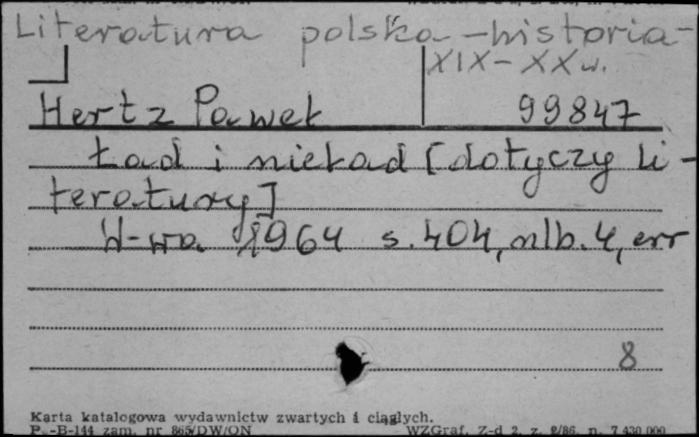 Literatura polska - historia -
XIX - XX w.
Hertz Paweł 99847
Ład i nieład [dotyczy li-
teratury]
W-wa 1964 s. 404, nlb. 4, err
8
Karta katalogowa wydawnictw zwartych i ciągłych.
P. -B-144 zam. nr 865/DW/ON WZGraf. Z-d 2. z. 2/86. n. 7 430 000